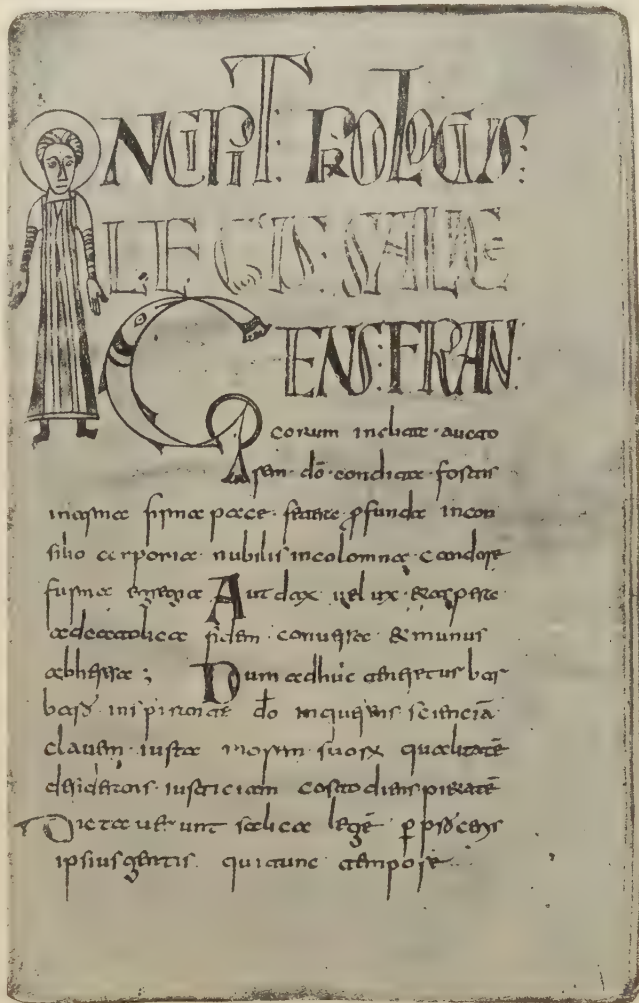 INCIPIT PROLOGUS:
LEGIS: SALICE
GENS: FRAN:
corum inclita · aucto
rem · dō · condita · fortis
inarma firma pace · fetere ꝓfunda incon
silio corporia · nubilis incolomna · candore
furma egregia Autdax uelux · & aspera
adcatolica fidem · conuersa · & munus
abheresa ; Dum adhuc teneretur bar
bara · inspirante dō inquerens · scienciā
clauem · iusta morem suorum qualitatē
desiderans · iusticiam costodiens pietatē
Dictauerunt salica legē ꝑ
ipsius gentis · qui tunc tempore